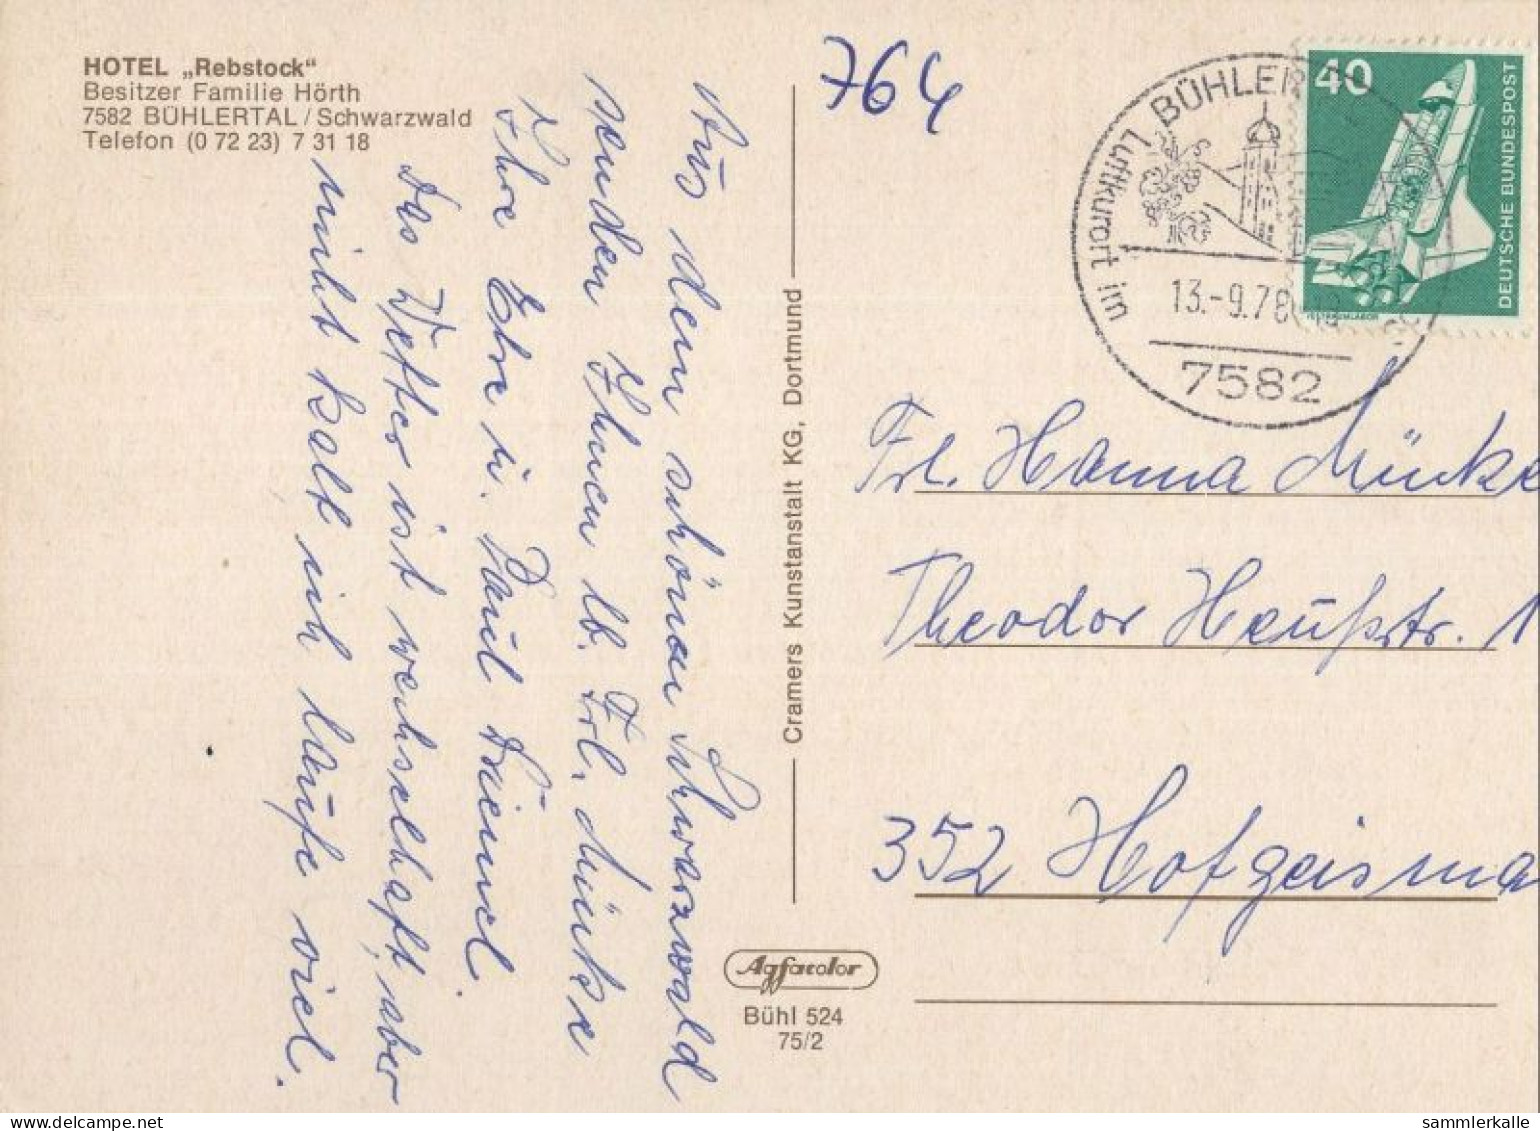 HOTEL „Rebstock“
Besitzer Familie Hörth
7582 BÜHLERTAL / Schwarzwald
Telefon (0 72 23) 7 31 18
Aus dem schönen Schwarzwald
senden Ihnen lb. Frl. Münke
Ihre Ehre u. Paul Däumel.
Das Wetter ist wechselhaft, aber
nicht kalt ich laufe viel.
Cramers Kunstanstalt KG, Dortmund
Agfacolor
Bühl 524
75/2
764
Luftkurort BÜHLER
im
13.-9.78
7582
40
DEUTSCHE BUNDESPOST
Frl. Hanna Münke
Theodor Heußstr. 1
352 Hofgeisma
delcampe.net
sammlerkalle